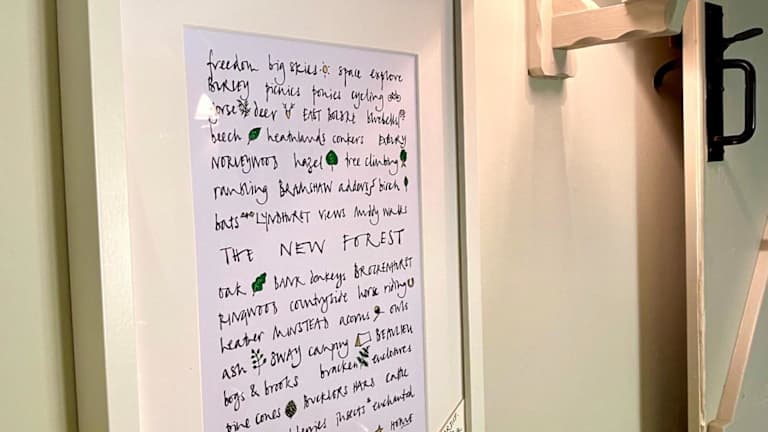 freedom big skies space explore
BURLEY picnics ponies cycling
gorse deer EAST BOLDRE bluebells
beech heathlands conkers EXBURY
NORLEYWOOD hazel tree climbing
rambling BRAMSHAW adders birch
bats LYNDHURST views muddy walks
THE NEW FOREST
oak BANK donkeys BROCKENHURST
RINGWOOD countryside horse riding
heather MINSTEAD acorns owls
ash SWAY camping BEAULIEU
bogs & brooks bracken enclosures
pine cones BUCKLERS HARD cattle
insects enchanted